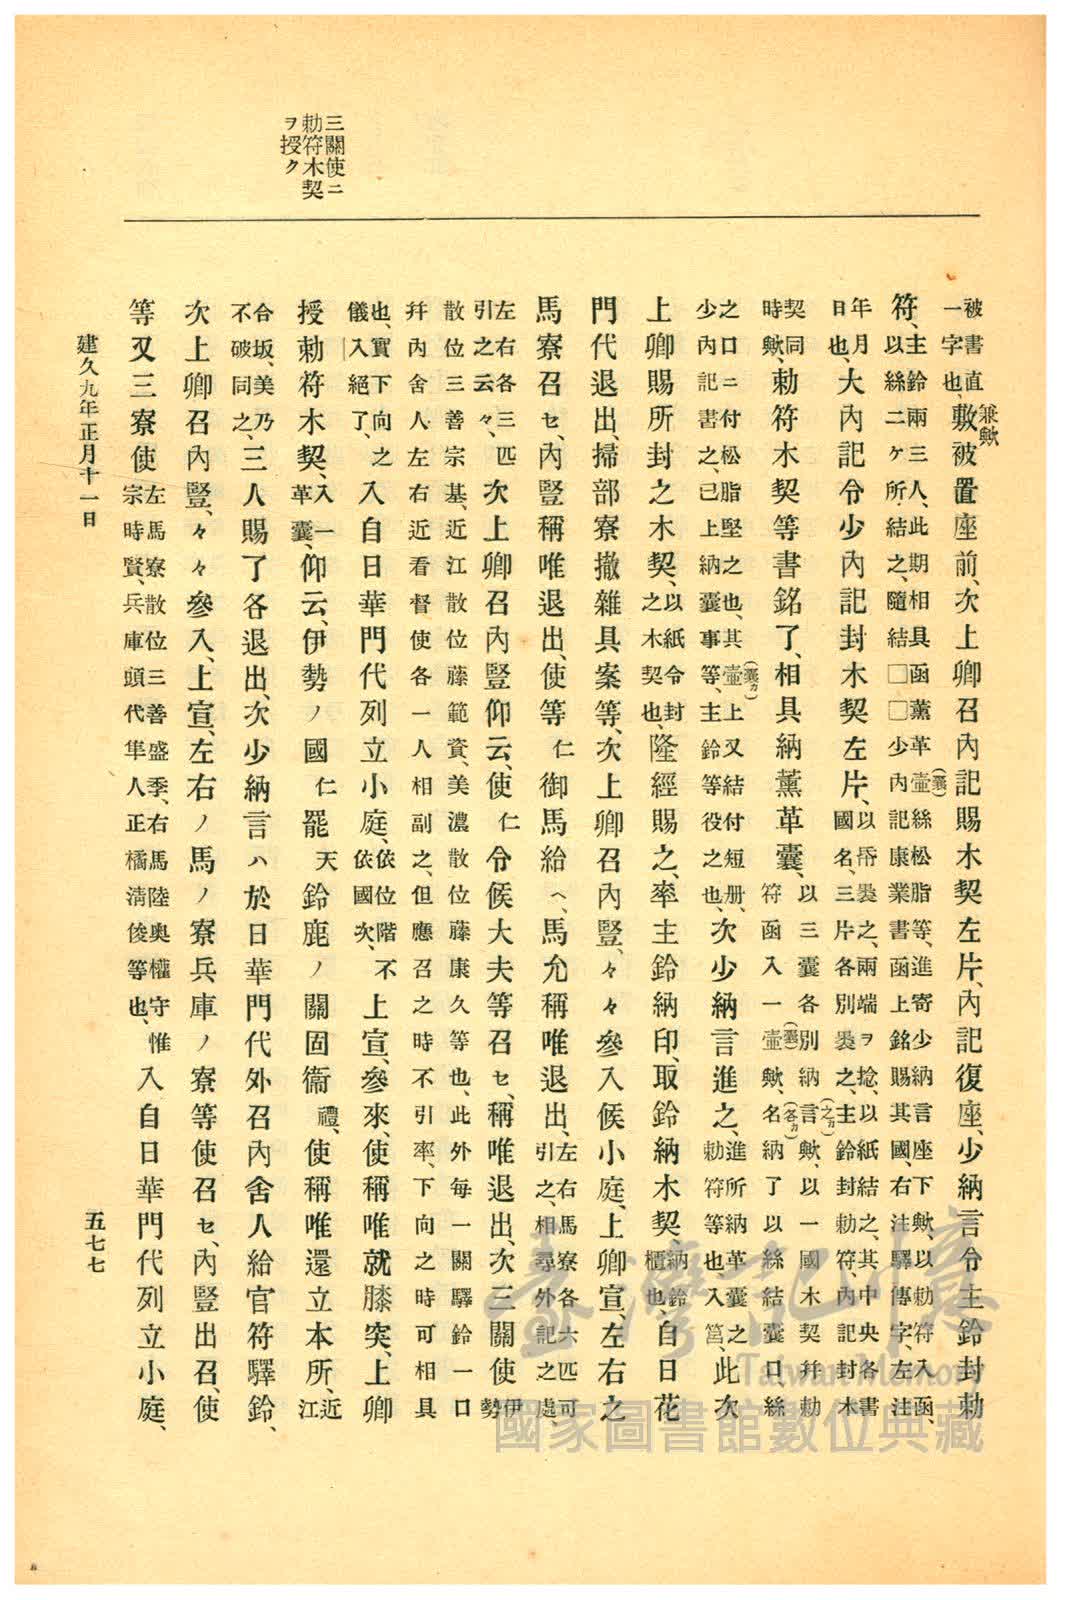 三關使ニ
勅符木契
ヲ授ク
被書直
一字也、敷(兼歟)被置座前、次上卿召內記賜木契左片、內記復座、少納言令主鈴封勅
符、主鈴兩三人、此期相具函薰革壷(囊)絲松脂等、進寄少納言座下歟、以勅符入函、
以絲二ケ所結之、隨結□□少內記康業書函上銘賜其國、右注驛傳字、左注
年月
日也、大內記令少內記封木契左片、以帋裹之、兩端ヲ捻、以紙結之、其中央各書
國名、三片各別裹之、主鈴封勅符、內記封木
契同
時歟、勅符木契等書銘了、相具納薰革囊、以三囊各別納言(之カ)歟、以一國木契幷勅
符函入一壷(囊)歟、名(各カ)納了以絲結囊口絲
之口ニ付松脂堅之也、其壷(囊カ)上又結付短册、
少內記書之、已上納囊事等、主鈴等役之也、次少納言進之、進所納革囊之
勅符等也、入筥、此次
上卿賜所封之木契、以紙令封
之木契也、隆經賜之、率主鈴納印、取鈴納木契納鈴
櫃也、自日花
門代退出、掃部寮撤雜具案等、次上卿召內豎、々々參入候小庭、上卿宣、左右之
馬寮召セ、內豎稱唯退出、使等仁御馬給ヘ、馬允稱唯退出、左右馬寮各六匹可
引之、相尋外記之處、
左右各三匹
引之云々、次上卿召內豎仰云、使仁令候大夫等召セ、稱唯退出、次三關使伊
勢
散位三善宗基、近江散位藤範資、美濃散位藤康久等也、此外每一關驛鈴一口
幷內舍人左右近看督使各一人相副之、但應召之時不引率、下向之時可相具
也、實下向之
儀入絕了、入自日華門代列立小庭、依位階不
依國次、上宣、參來、使稱唯就膝突、上卿
授勅符木契、入一
革囊、仰云、伊勢ノ國仁罷天鈴鹿ノ關固衞禮、使稱唯還立本所、近
江
合坂、美乃
不破同之、三人賜了各退出、次少納言ハ於日華門代外召內舍人給官符驛鈴、
次上卿召內豎、々々參入、上宣、左右ノ馬ノ寮兵庫ノ寮等使召セ、內豎出召、使
等又三寮使左馬寮散位三善盛季、右馬陸奥權守惟
宗時賢、兵庫頭代隼人正橘淸俊等也、入自日華門代列立小庭、
建久九年正月十一日
五七七
臺灣記憶
Taiwan Memory
國家圖書館數位典藏